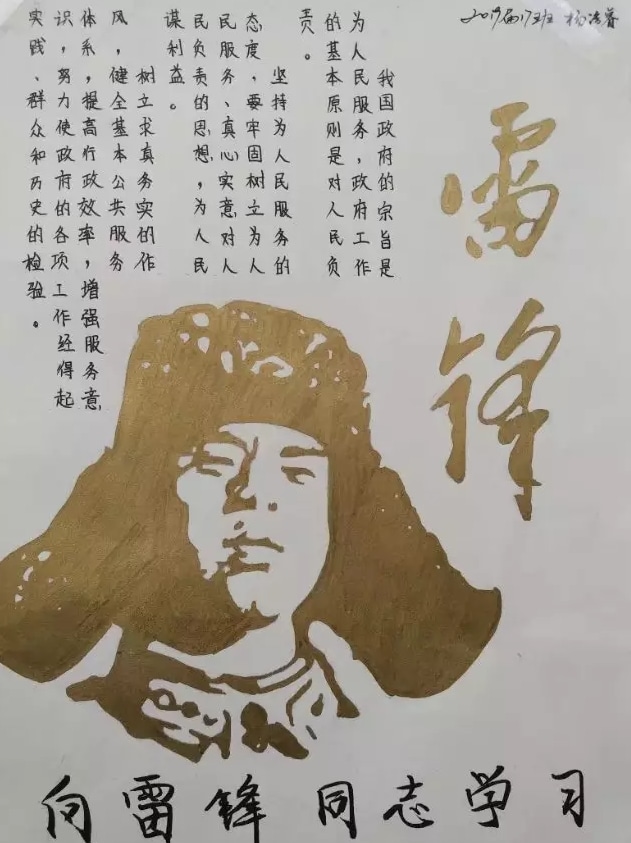 2019届17班
雷锋
我国政府的宗旨是
为人民服务，政府工作
的基本原则是对人民负
责。
坚持为人民服务的
态度，要牢固树立为人
民服务、真心实意对人
民负责的思想，为人民
谋利益。
树立求真务实的作
风，健全基本公共服务
体系，提高行政效率，增强服务意
识，努力使政府的各项工作经得起
实践、群众和历史的检验。
向雷锋同志学习